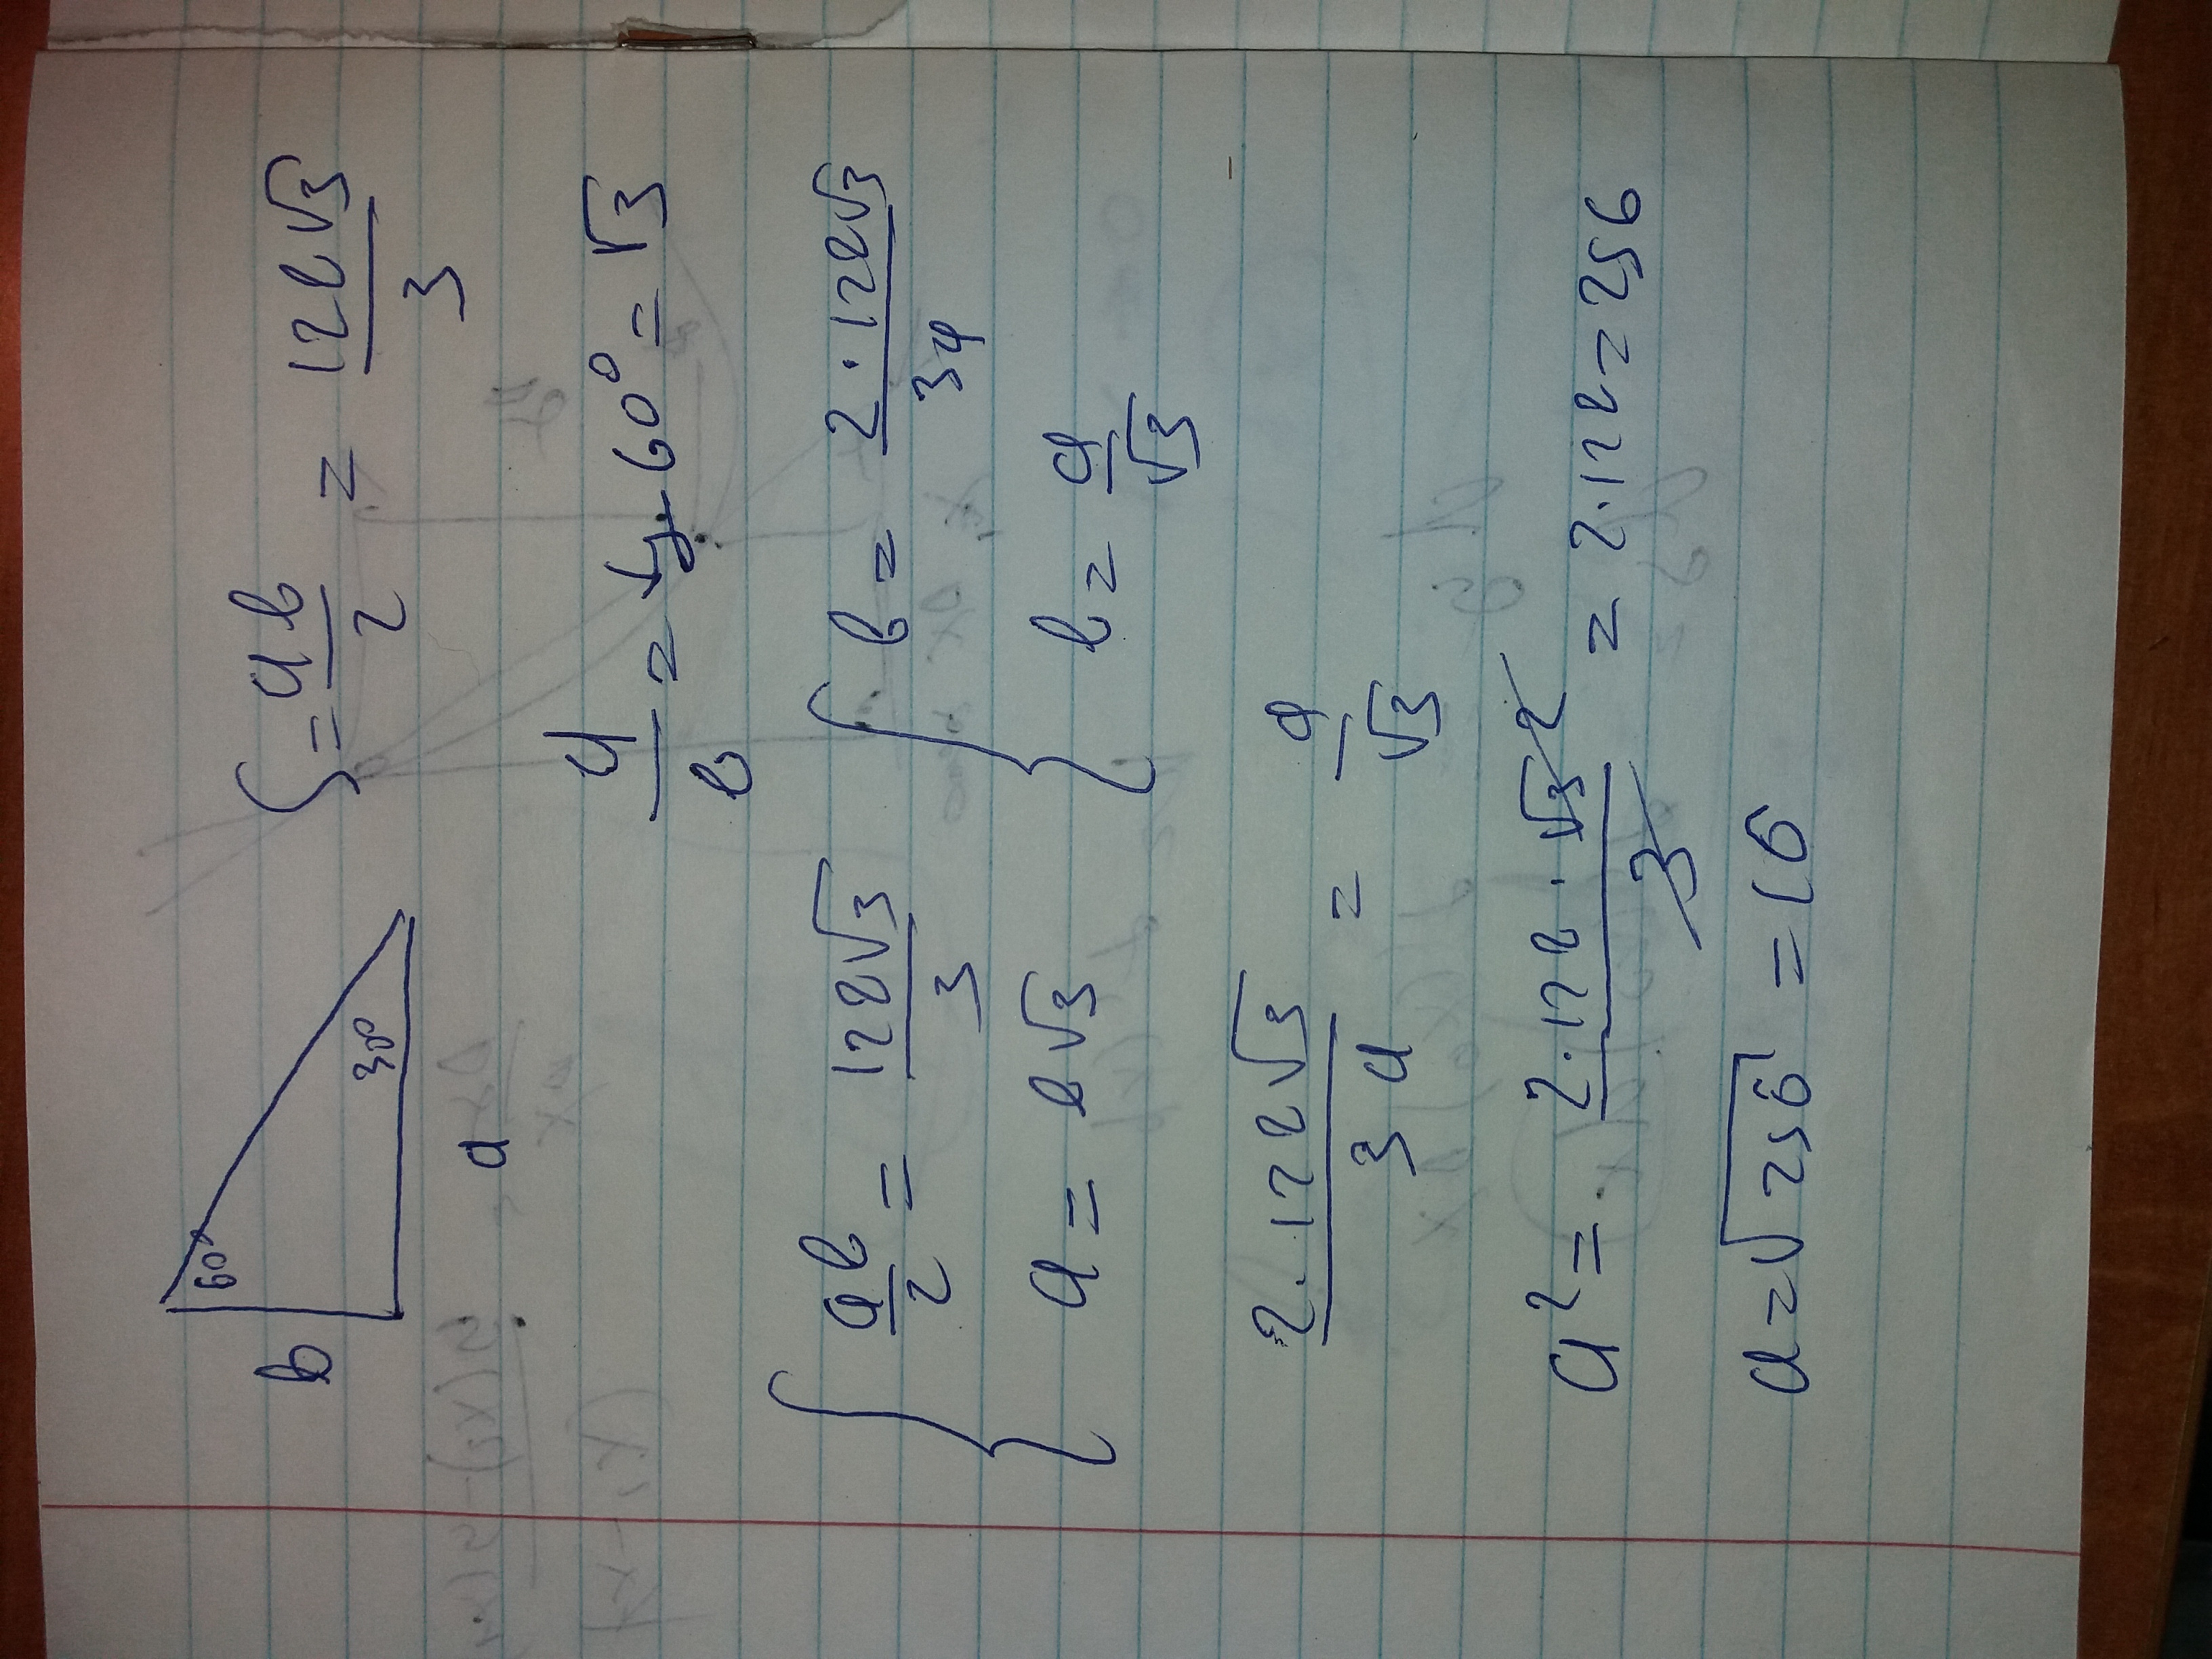 b 60° 30° a
S = ab/2 = 128√3/3
a/b = tg 60° = √3
{ ab/2 = 128√3/3 { b = 2·128√3/3a
a = b√3 b = a/√3
2·128√3/3a = a/√3
a² = 2·128·√3²/3 = 2·128 = 256
a = √256 = 16